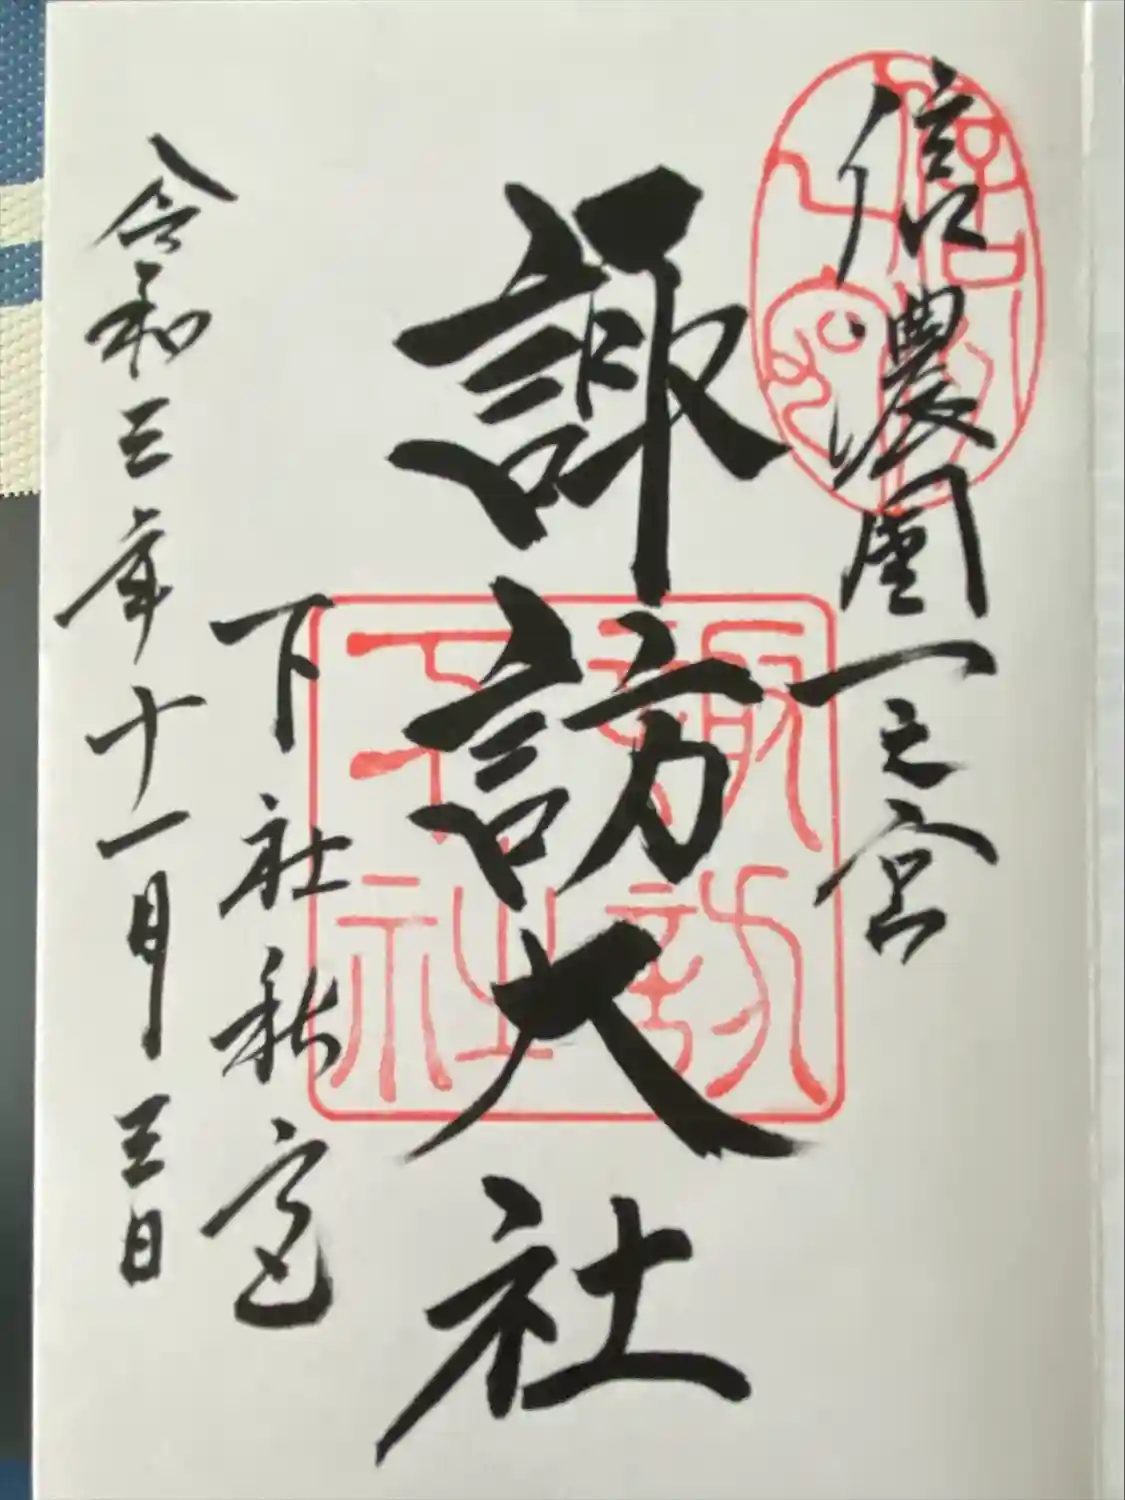 信濃國一之宮
諏訪大社
下社秋宮
令和三年十一月三日
諏訪大社